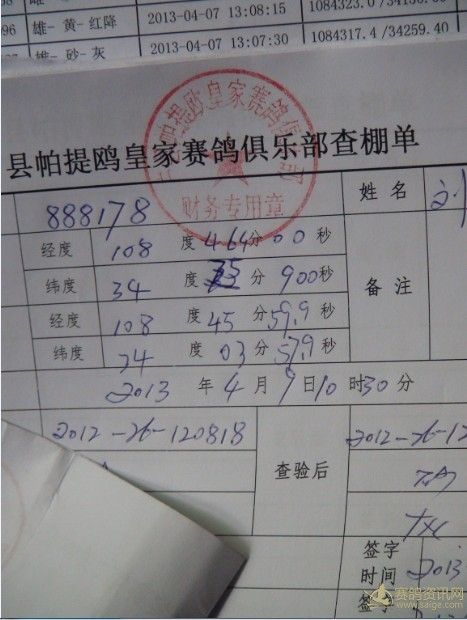 96 雄- 黄- 红降 2013-04-07 13:08:15
雄- 砂- 灰 2013-04-07 13:07:30 1084317.4 /34259.40
县帕提鸥皇家赛鸽俱乐部查棚单
帕提欧皇家赛鸽俱
财务专用章
888178 姓 名
经度 108 度 分 00 秒
纬度 34 度 分 900 秒 备 注
经度 108 度 45 分 59.9 秒
纬度 34 度 03 分 57.9 秒
2013 年 4 月 9 日 10 时 30 分
2012-26-120818 查验后 2012-26-12
签字
时间 2013
签字
赛鸽资讯网
www.saige.com